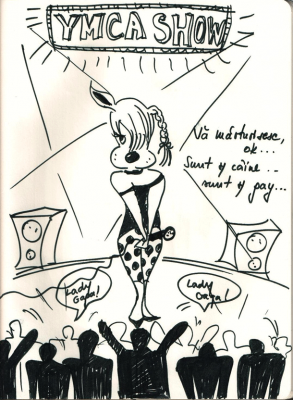 YMCA SHOW
Vă mărturisesc,
ok...
Sunt și câine..
sunt și gay...
Lady
Gaga!
Lady
Gaga!